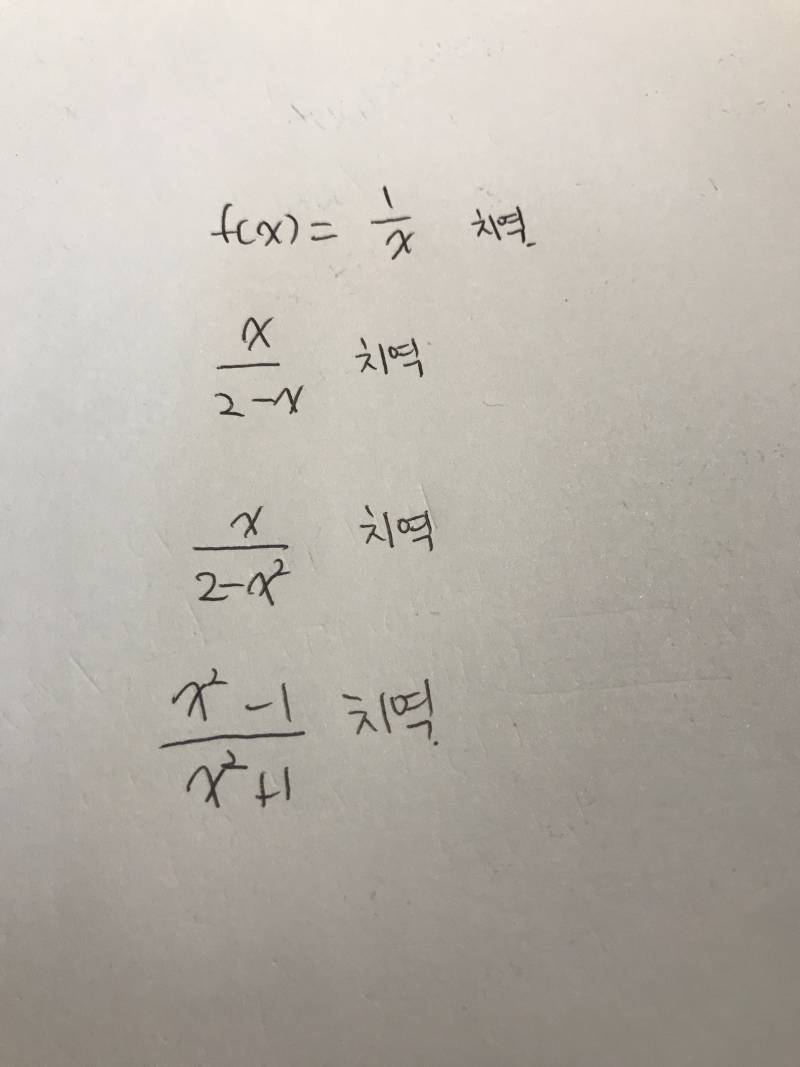 f(x) = 1/x 치역.
x/(2-x) 치역
x/(2-x²) 치역
(x²-1)/(x²+1) 치역.